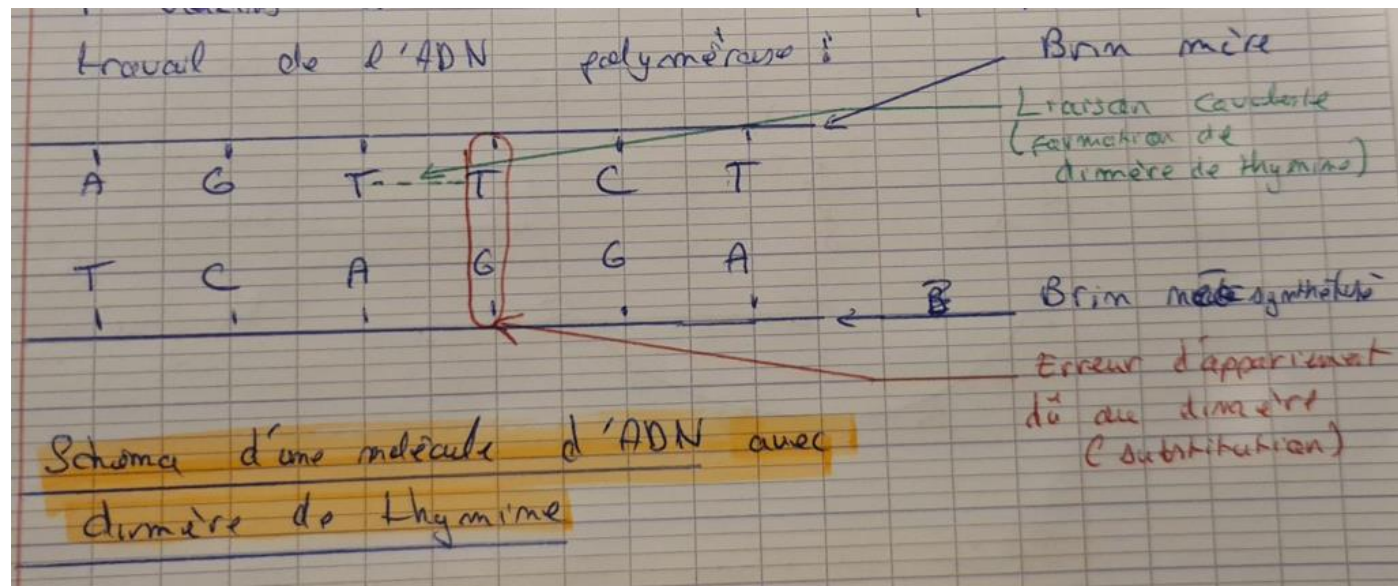 travail de l'ADN polymérase :
Brin mère
Liaison covalente
(formation de
dimère de thymine)
A G T T C T
T C A G G A
Brin synthétisé
Erreur d'appariement
dû au dimère
(substitution)
Schéma d'une molécule d'ADN avec
dimère de thymine